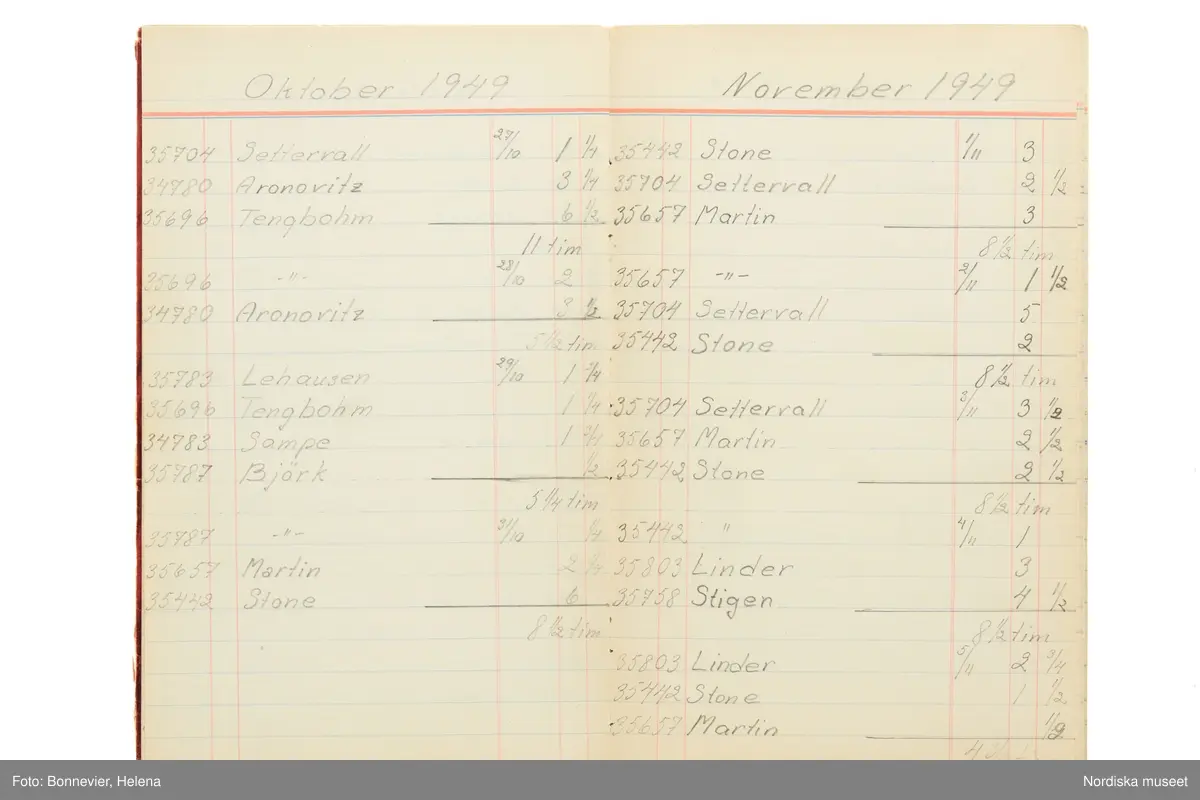 Oktober 1949
35704 Settervall 27/10 1 1/4
34780 Aronovitz 3 1/4
35696 Tengbohm 6 1/2
11 tim
35696 -"- 28/10 2
34780 Aronovitz 3 1/2
5 1/2 tim
35783 Lehausen 29/10 1 3/4
35696 Tengbohm 1 1/4
34783 Sampe 1 3/4
35787 Björk 1/2
5 1/4 tim
35787 -"- 31/10 1/4
35657 Martin 2 1/4
35442 Stone 6
8 1/2 tim
November 1949
35442 Stone 1/11 3
35704 Settervall 2 1/2
35657 Martin 3
8 1/2 tim
35657 -"- 2/11 1 1/2
35704 Settervall 5
35442 Stone 2
8 1/2 tim
35704 Settervall 3/11 3 1/2
35657 Martin 2 1/2
35442 Stone 2 1/2
8 1/2 tim
35442 " 4/11 1
35803 Linder 3
35758 Stigen 4 1/2
8 1/2 tim
35803 Linder 5/11 2 3/4
35442 Stone 1 1/2
35657 Martin 1/2
4
Foto: Bonnevier, Helena
Nordiska museet